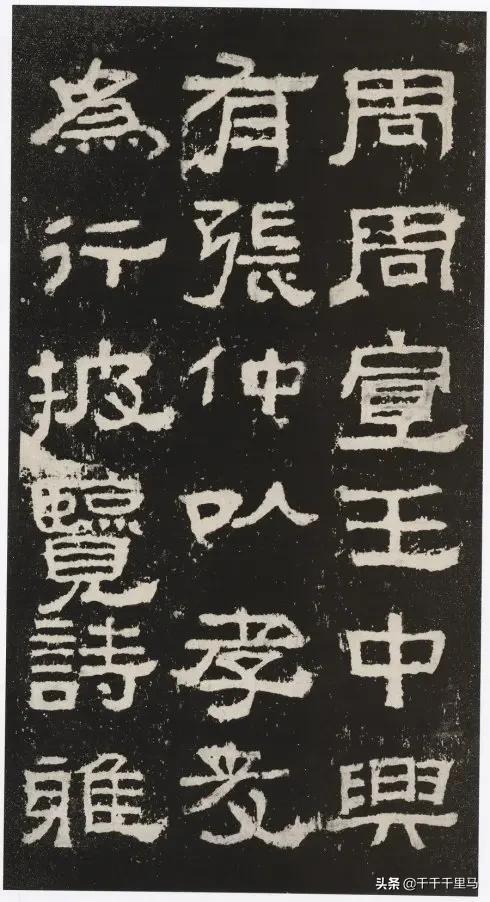 周周宣王中興
有張仲以孝友
爲行披覽詩雅
头条 @千千千里马